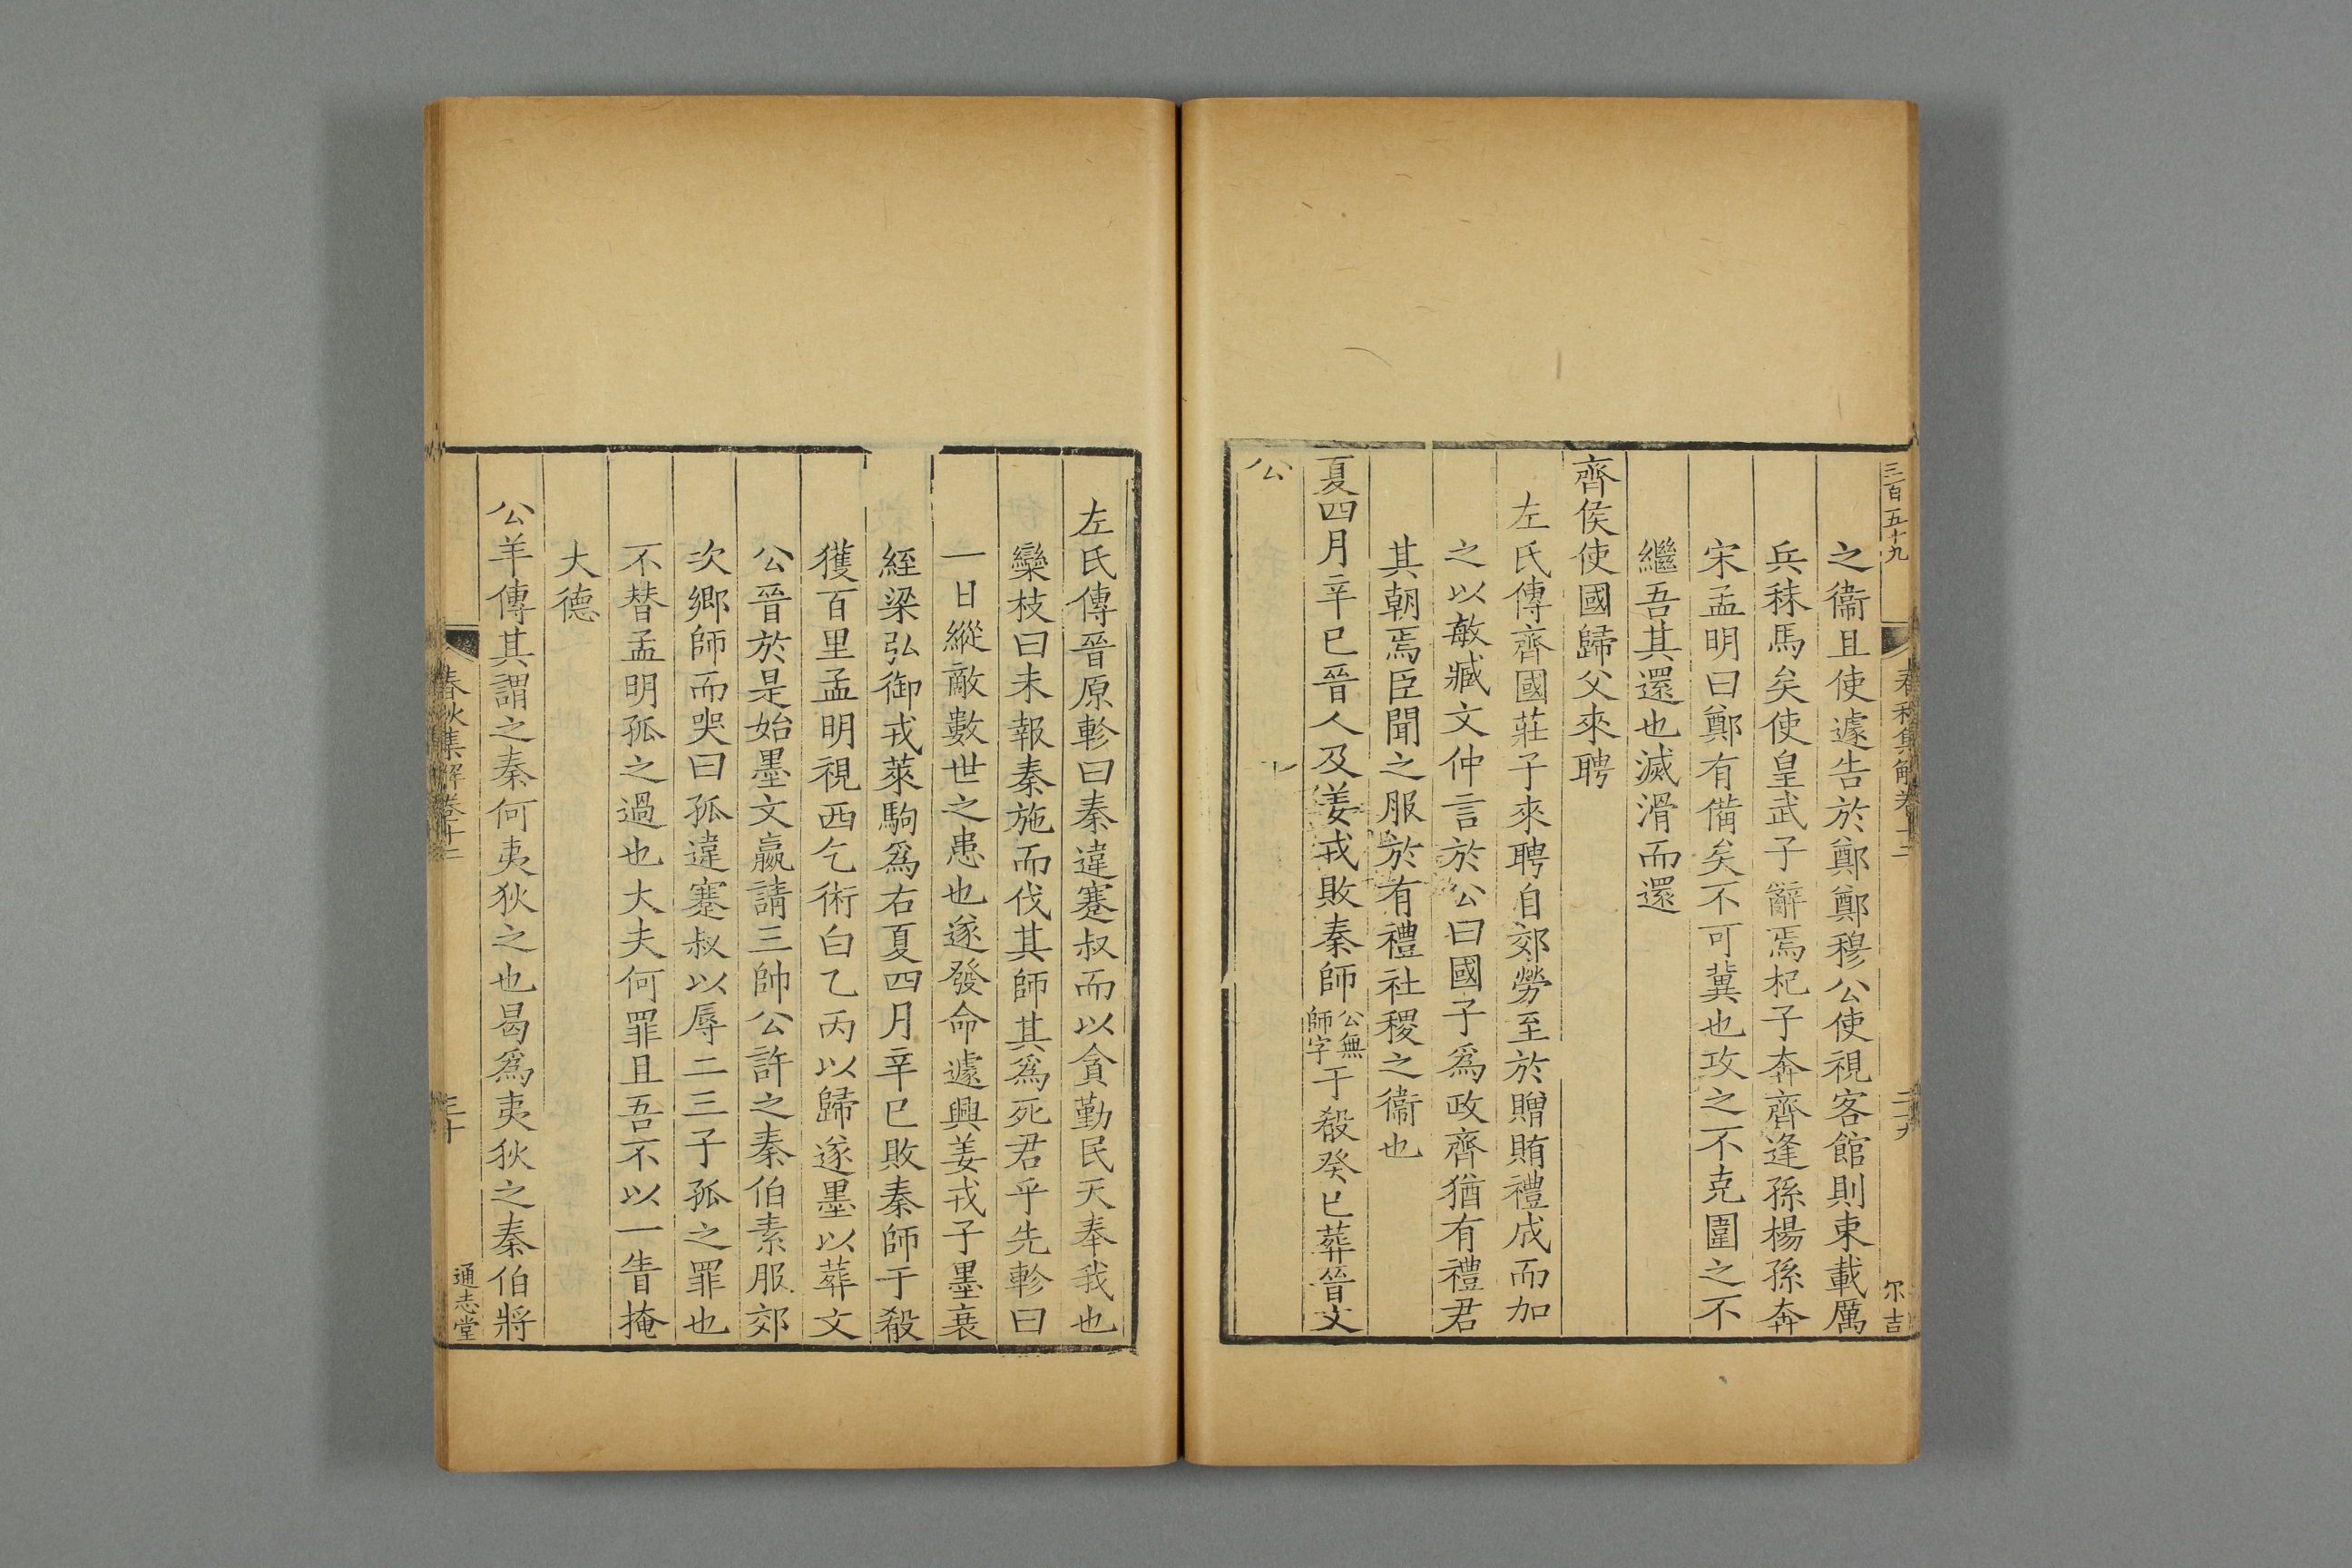 三百五十九
春秋集解卷十二
二十九
尔吉
之衞且使遽告於鄭鄭穆公使視客館則束載厲
兵秣馬矣使皇武子辭焉杞子奔齊逢孫楊孫奔
宋孟明曰鄭有備矣不可冀也攻之不克圍之不
繼吾其還也滅滑而還
齊侯使國歸父來聘
左氏傳齊國莊子來聘自郊勞至於贈賄禮成而加
之以敏臧文仲言於公曰國子爲政齊猶有禮君
其朝焉臣聞之服於有禮社稷之衞也
夏四月辛巳晉人及姜戎敗秦師公無師字于殽癸巳葬晉文
公
左氏傳晉原軫曰秦違蹇叔而以貪勤民天奉我也
欒枝曰未報秦施而伐其師其爲死君乎先軫曰
一日縱敵數世之患也遂發命遽興姜戎子墨衰
絰梁弘御戎萊駒爲右夏四月辛巳敗秦師于殽
獲百里孟明視西乞術白乙丙以歸遂墨以葬文
公晉於是始墨文嬴請三帥公許之秦伯素服郊
次鄉師而哭曰孤違蹇叔以辱二三子孤之罪也
不替孟明孤之過也大夫何罪且吾不以一眚掩
大德
公羊傳其謂之秦何夷狄之也曷爲夷狄之秦伯將
春秋集解卷十二
三十
通志堂